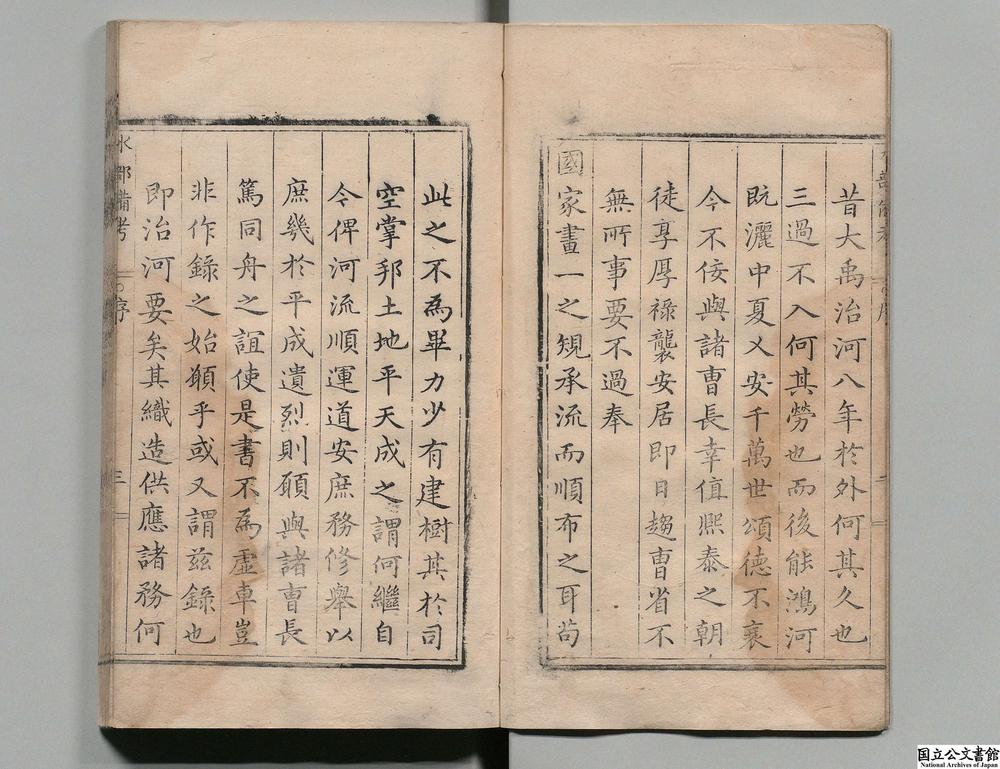 昔大禹治河八年於外何其久也
三過不入何其勞也而後能鴻河
既灑中夏乂安千萬世頌德不衰
今不佞與諸曹長幸值熙泰之朝
徒享厚祿襲安居即日趨曹省不
無所事要不過奉
國家畫一之規承流而順布之耳苟
此之不為畢力少有建樹其於司
空掌邦土地平天成之謂何繼自
今俾河流順運道安庶務修舉以
庶幾於平成遺烈則願與諸曹長
篤同舟之誼使是書不為虛車豈
非作錄之始願乎或又謂茲錄也
即治河要矣其織造供應諸務何
水部備考 序 三
国立公文書館
National Archives of Japan